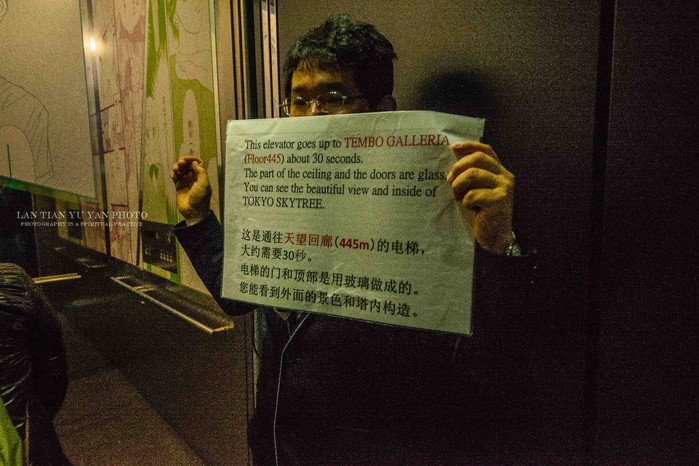 This elevator goes up to TEMBO GALLERIA
(Floor445) about 30 seconds.
The part of the ceiling and the doors are glass.
You can see the beautiful view and inside of
TOKYO SKYTREE.
这是通往天望回廊（445m）的电梯，
大约需要30秒。
电梯的门和顶部是用玻璃做成的。
您能看到外面的景色和塔内构造。
LAN TIAN YU YAN PHOTO
PHOTOGRAPHY IS A SPIRITUAL PRACTICE